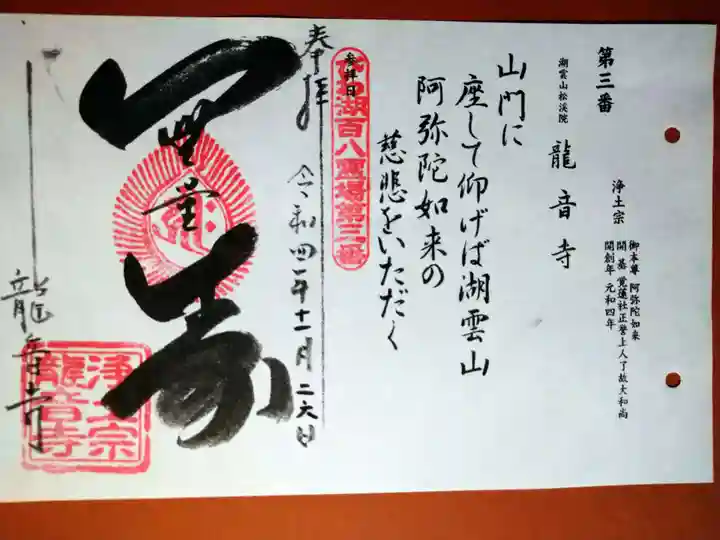 第三番
浄土宗
御本尊 阿弥陀如来
開基 覚蓮社正誉上人了故大和尚
開創年 元和四年
湖雲山松渓院
龍音寺
山門に
座して仰げば湖雲山
阿弥陀如来の
慈悲をいただく
参拝日
百八霊場第三番
奉拝
令和四年十一月二六日
無量寿
龍音寺
浄土宗
龍音寺